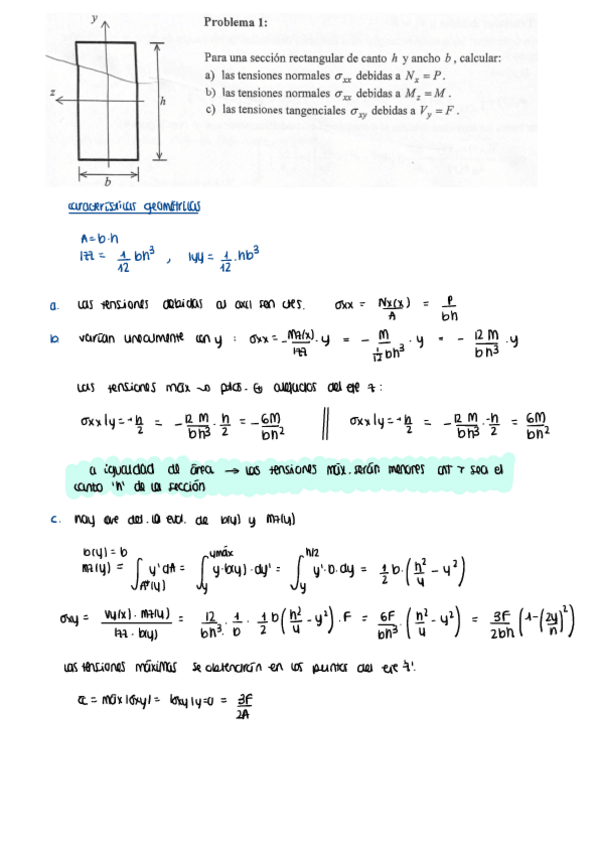 Problema 1:
Para una sección rectangular de canto h y ancho b , calcular:
a) las tensiones normales σxx debidas a Nx = P .
b) las tensiones normales σxx debidas a Mz = M .
c) las tensiones tangenciales σxy debidas a Vy = F .
y
z
h
b
características geométricas
A=b·h
Izz = 1/12 bh³ , Iyy = 1/12 ·hb³
a. Las tensiones debidas al axil son ctes. σxx = Nx(x)/A = P/bh
b varían linealmente con y : σxx = -Mz(x)/Izz · y = - M/(1/12 bh³) · y = - 12 M/bh³ · y
Las tensiones máx → ptos. + alejados del eje z :
σxx|y=+h/2 = - 12 M/bh³ · h/2 = - 6M/bh² || σxx|y=-h/2 = - 12 M/bh³ · -h/2 = 6M/bh²
a igualdad de área → las tensiones máx. serán menores cnt > sea el
canto 'h' de la sección
c. hay que det. la evol. de b(y) y mz(y)
b(y) = b
mz(y) = ∫A*(y) y' dA = ∫y^ymáx y·b(y)·dy' = ∫y^h/2 y'·b·dy = 1/2 b·(h²/4 - y²)
σxy = Vy(x)·mz(y)/Izz·b(y) = 12/bh³ · 1/b · 1/2 b(h²/4 - y²)·F = 6F/bh³ · (h²/4 - y²) = 3F/2bh (1-(2y/h)²)
Las tensiones máximas se obtendrán en los puntos del eje 'z'.
τ = máx|σxy| = |σxy|y=0 = 3F/2A